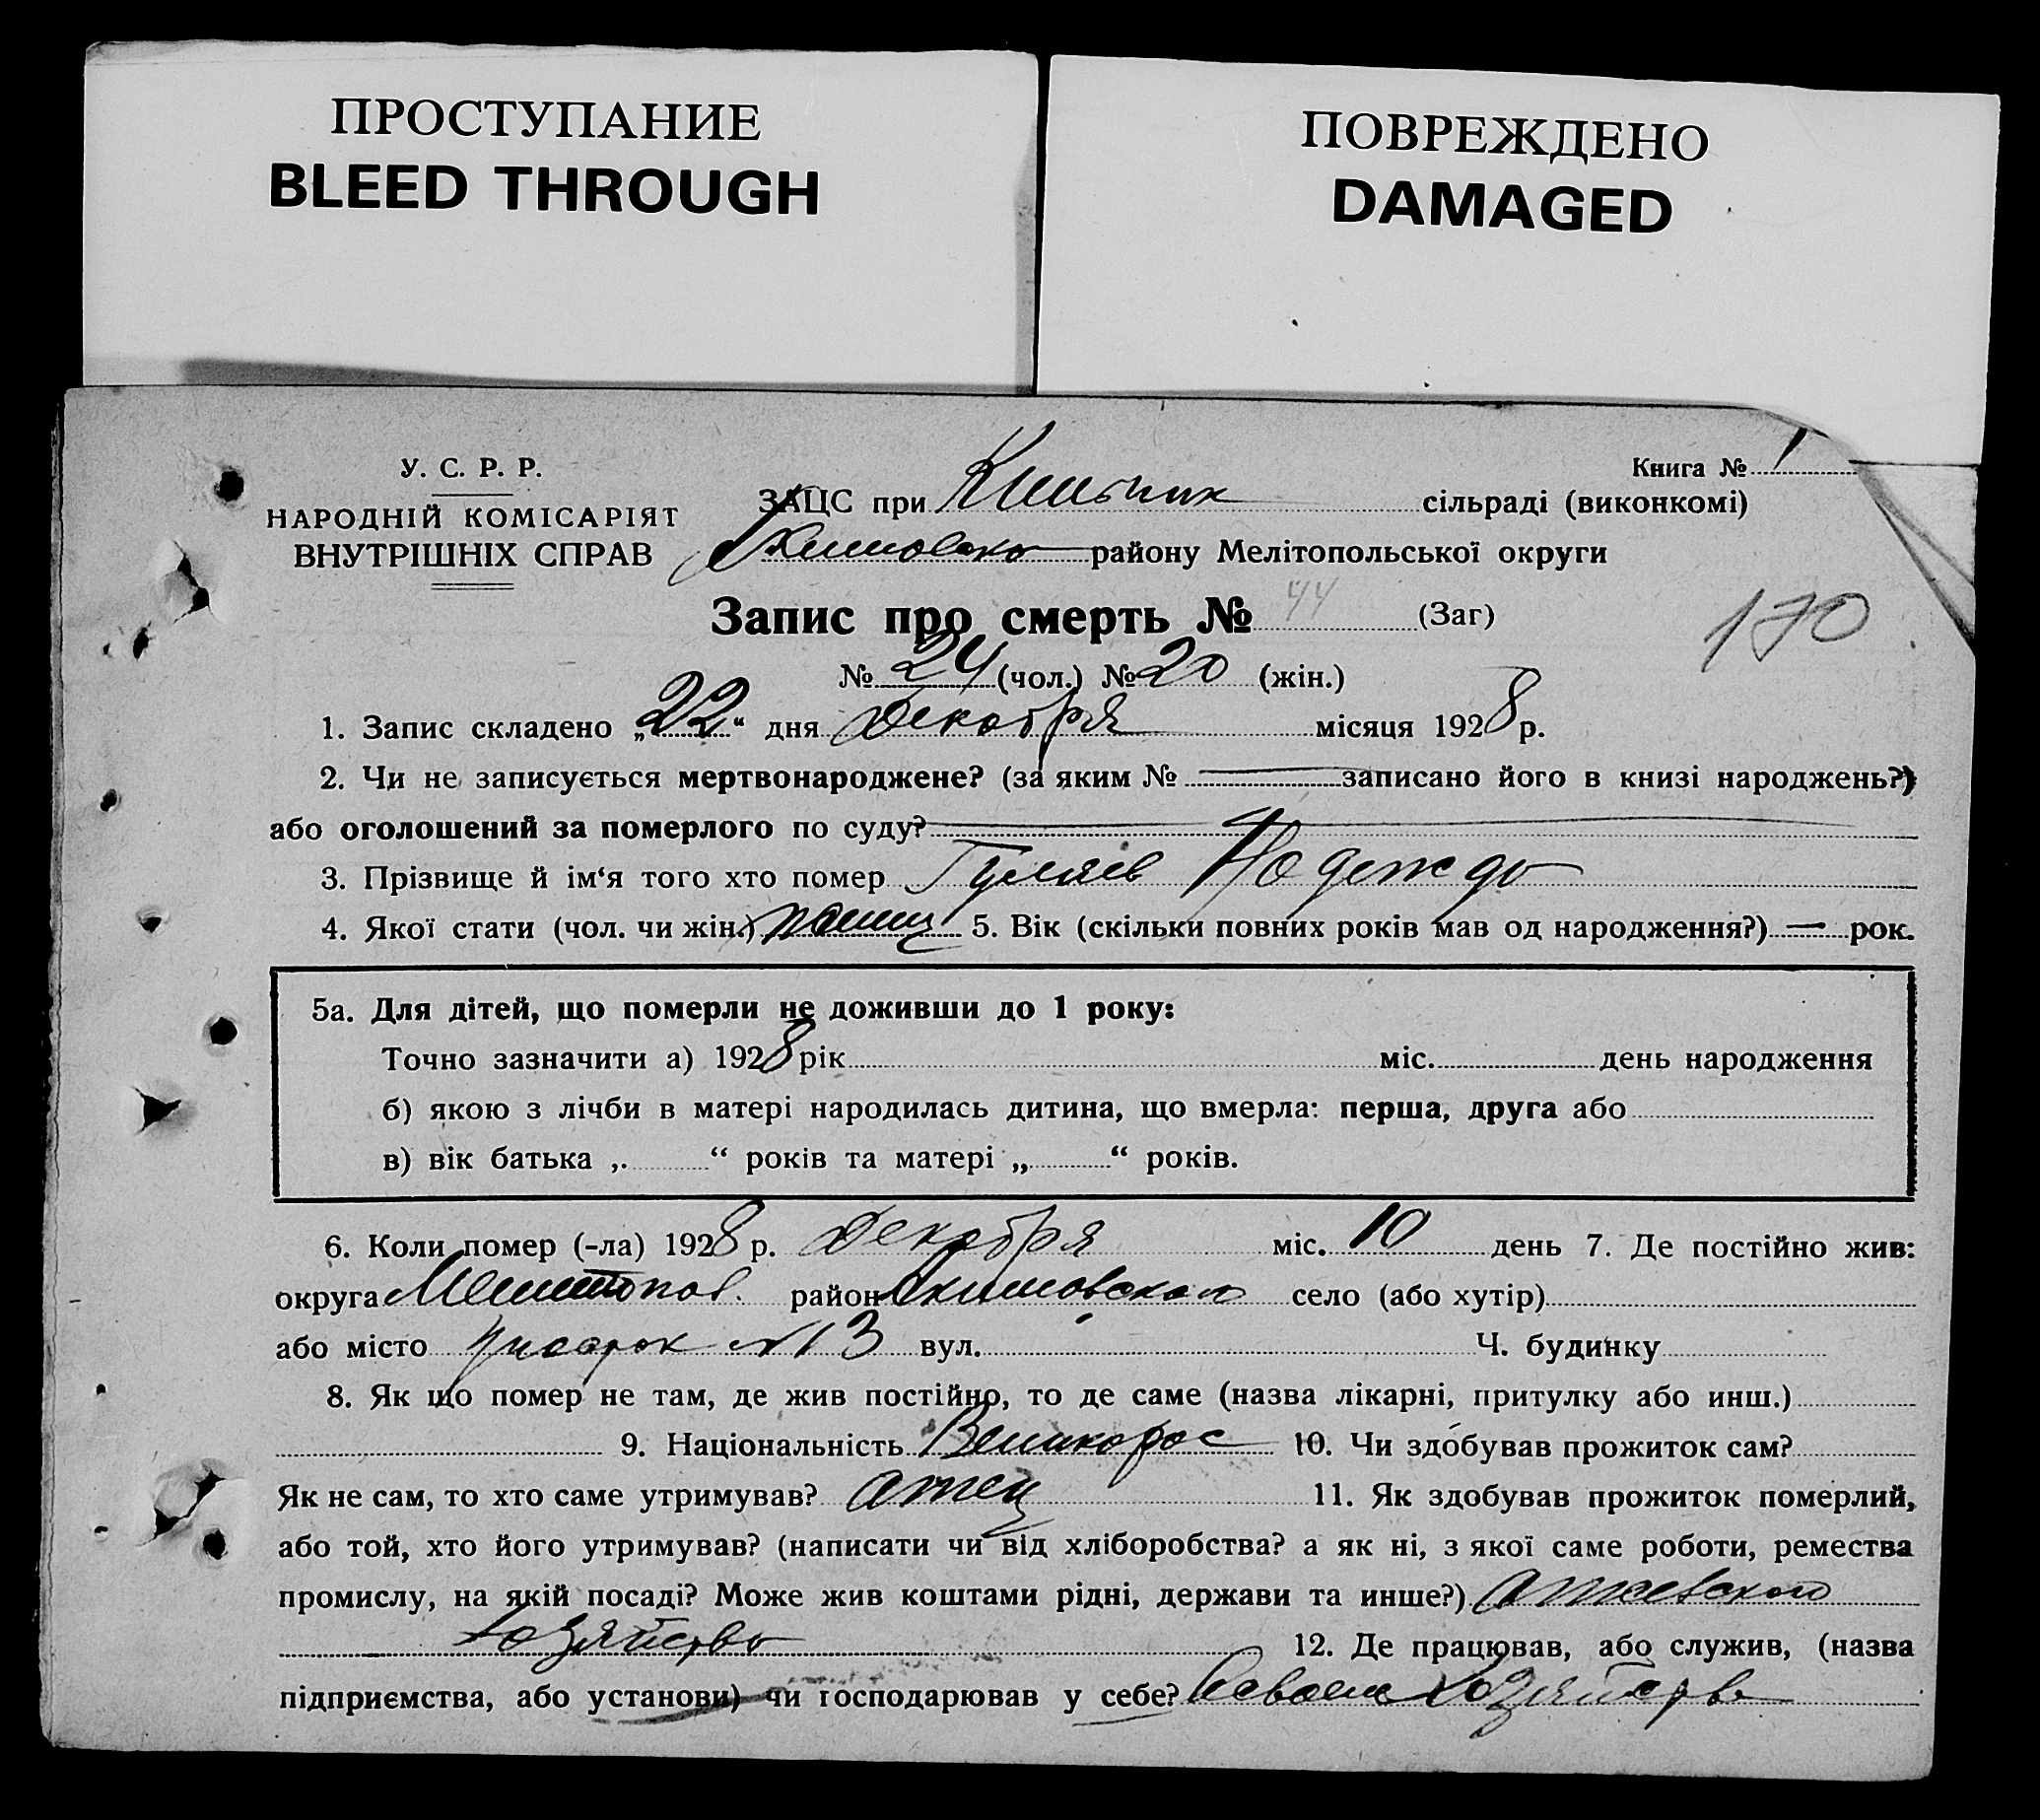 ПРОСТУПАНИЕ
BLEED THROUGH
ПОВРЕЖДЕНО
DAMAGED
У. С. Р. Р.
НАРОДНІЙ КОМІСАРІЯТ
ВНУТРІШНІХ СПРАВ
Книга № 1
ЗАЦС при сільраді (виконкомі)
району Мелітопольської округи
Запис про смерть № 44 (Заг)
170
№ 24 (чол.) № 20 (жін.)
1. Запис складено „22“ дня Декабря місяця 1928 р.
2. Чи не записується мертвонароджене? (за яким № — записано його в книзі народжень?)
або оголошений за померлого по суду? —
3. Прізвище й ім‘я того хто помер Гуляев Надежда
4. Якої стати (чол. чи жін.) 5. Вік (скільки повних років мав од народження?) — рок.
5а. Для дітей, що померли не доживши до 1 року:
Точно зазначити а) 1928 рік міс. день народження
б) якою з лічби в матері народилась дитина, що вмерла: перша, друга або
в) вік батька „ “ років та матері „ “ років.
6. Коли помер (-ла) 1928 р. Декабря міс. 10 день 7. Де постійно жив:
округа Мелитопол. район Акимовского село (або хутір)
або місто участок №13 вул. Ч. будинку
8. Як що помер не там, де жив постійно, то де саме (назва лікарні, притулку або инш.)
9. Національність Великорос 10. Чи здобував прожиток сам?
Як не сам, то хто саме утримував? атец 11. Як здобував прожиток померлий,
або той, хто його утримував? (написати чи від хліборобства? а як ні, з якої саме роботи, ремества
промислу, на якій посаді? Може жив коштами рідні, держави та инше?)
хозяйства 12. Де працював, або служив, (назва
підприємства, або установи) чи господарював у себе? всваем хозяйстве